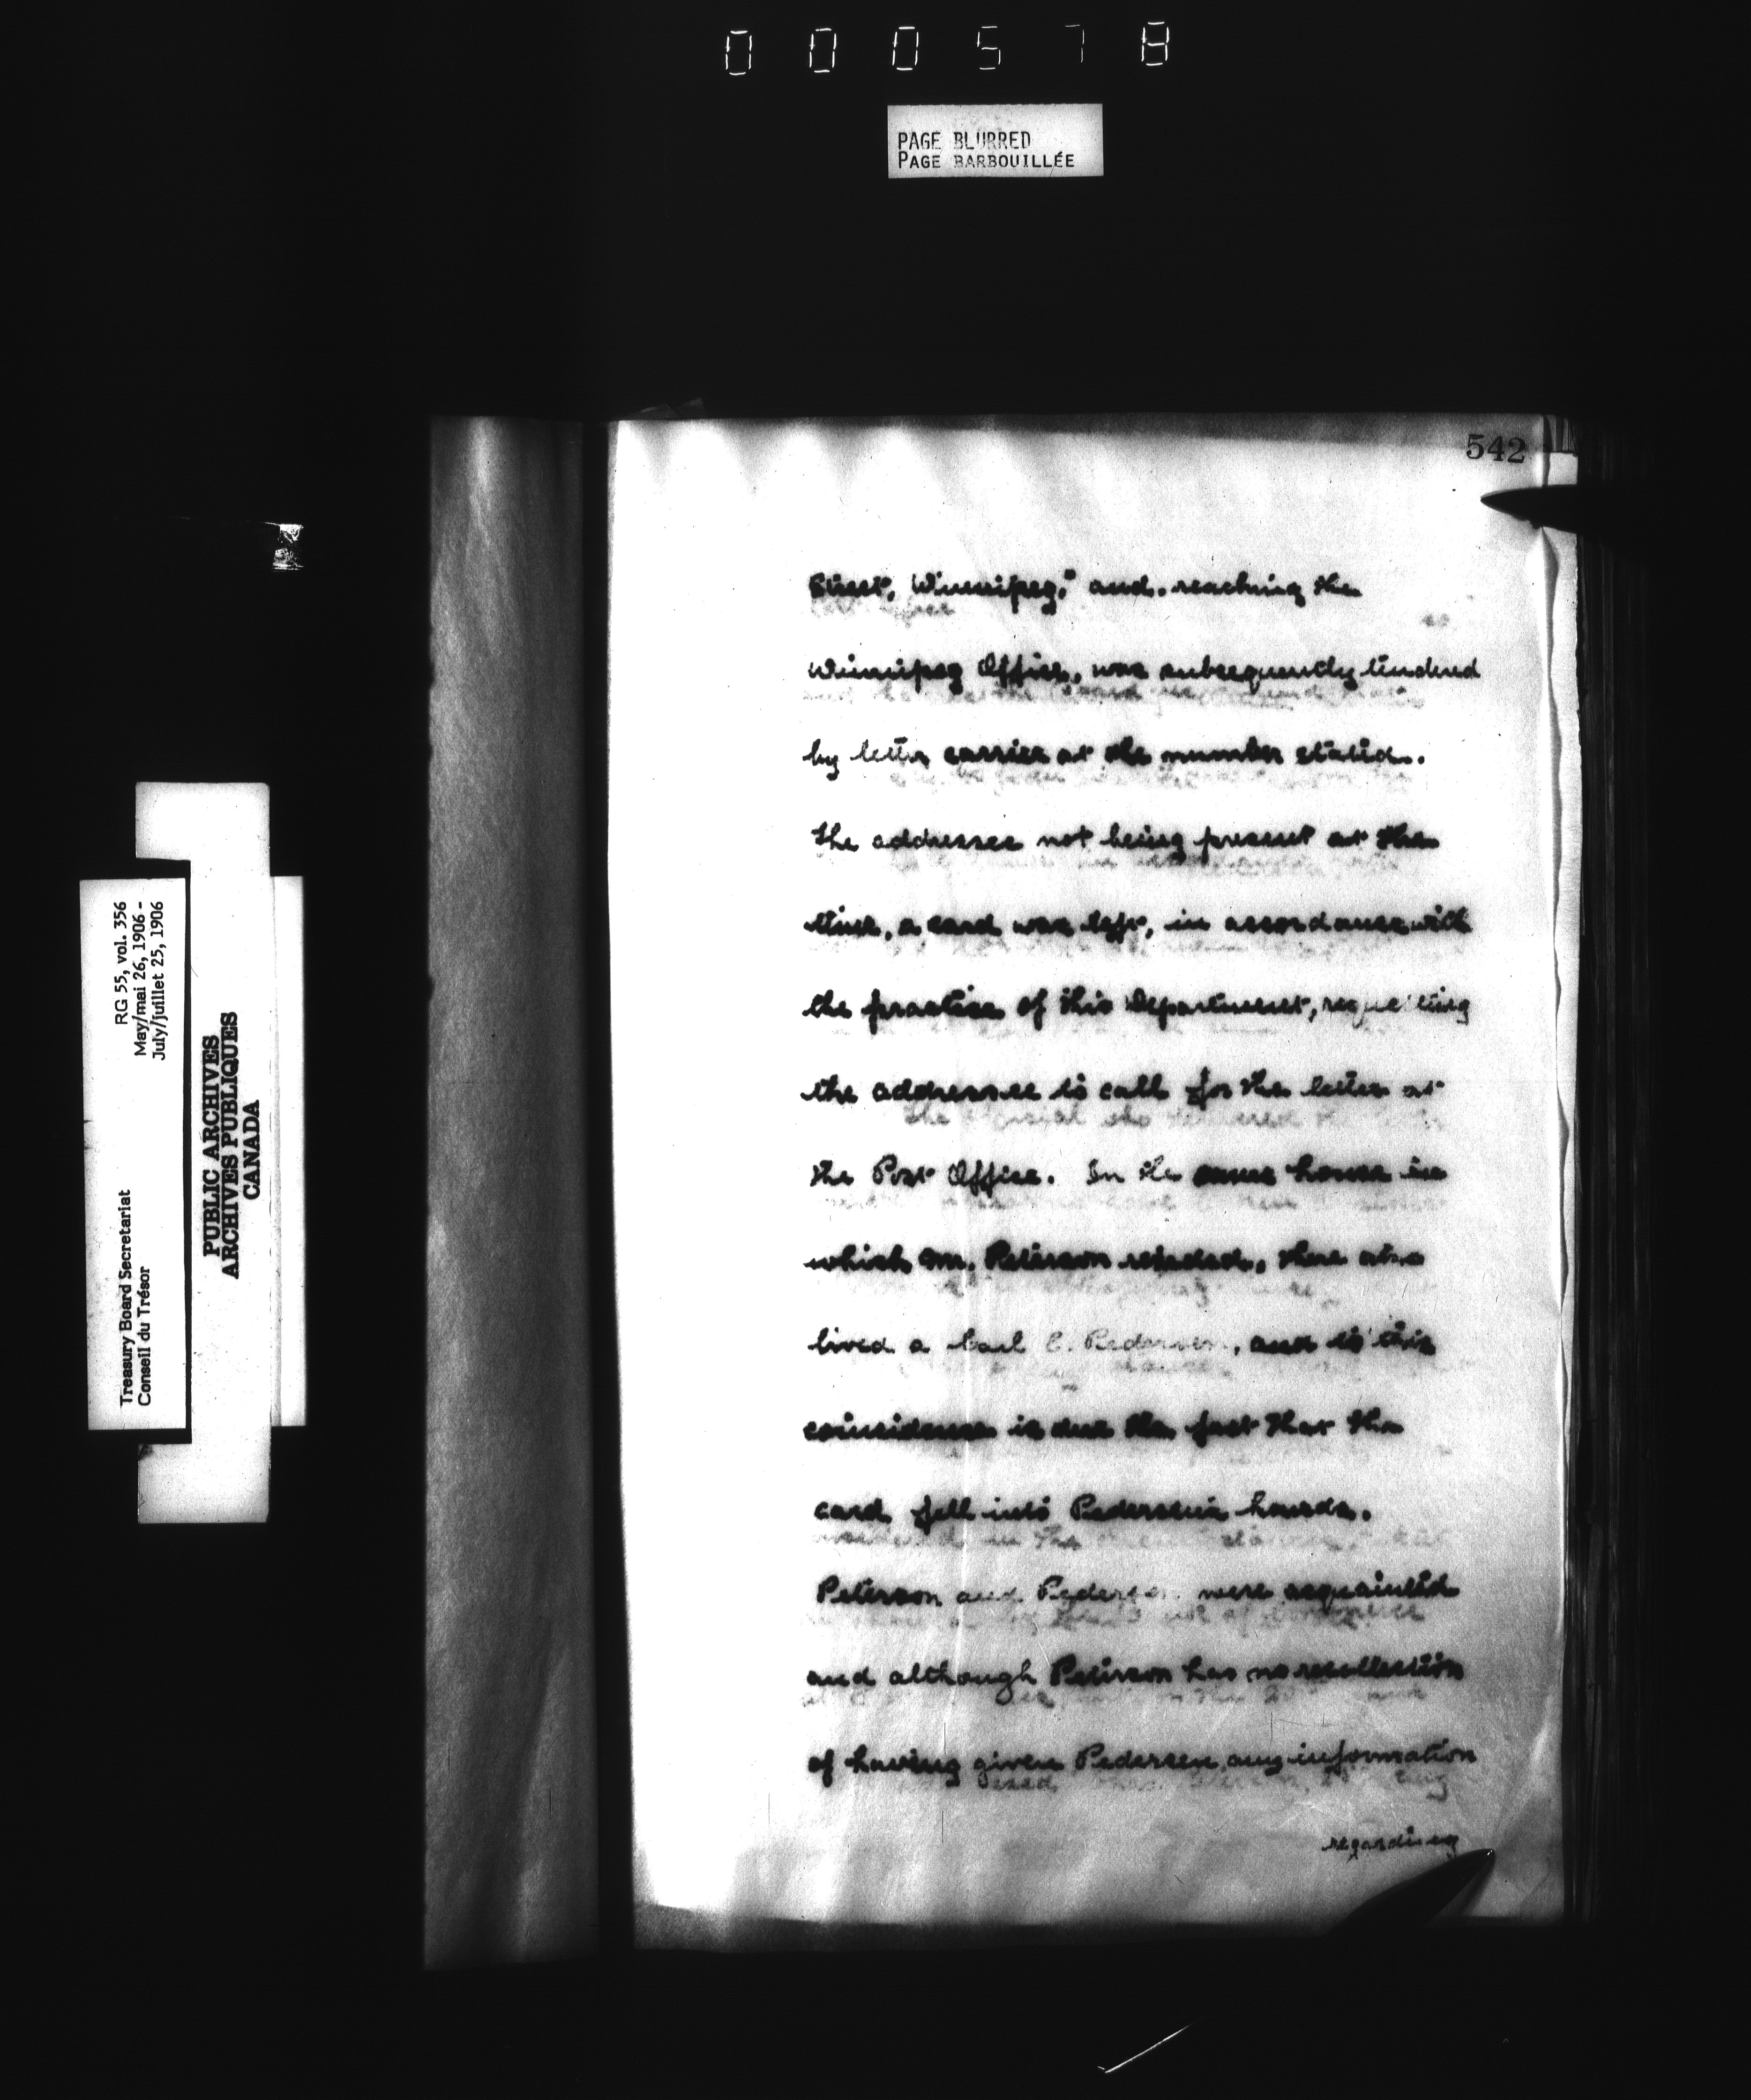 000578
PAGE BLURRED
PAGE BARBOUILLÉE
542
Street, Winnipeg," and reaching the
Winnipeg Office, was subsequently tendered
by letter carrier at the number stated.
The addressee not being present at the
time, a card was left, in accordance with
the practice of this Department, requesting
the addressee to call for the letter at
the Post Office. In the same house in
which Mr. Peterson resided, there also
lived a Carl C. Pedersen, and to this
coincidence is due the fact that the
card fell into Pedersen's hands.
Peterson and Pedersen were acquainted
and although Peterson has no recollection
of having given Pedersen any information
regarding
Treasury Board Secretariat
Conseil du Trésor
RG 55, vol. 356
May/mai 26, 1906 -
July/juillet 25, 1906
PUBLIC ARCHIVES
ARCHIVES PUBLIQUES
CANADA